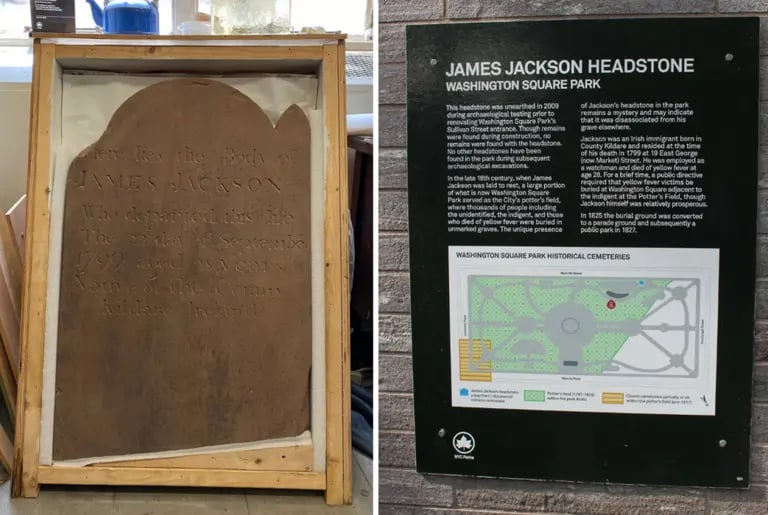 Here lies the Body of
JAMES JACKSON
Who departed this life
The day of September
1799 aged 28 years
Native of the County
Kildare Ireland
JAMES JACKSON HEADSTONE
WASHINGTON SQUARE PARK
This headstone was unearthed in 2009
during archaeological testing prior to
renovating Washington Square Park's
Sullivan Street entrance. Though remains
were found during construction, no
remains were found with the headstone.
No other headstones have been
found in the park during subsequent
archaeological excavations.
In the late 18th century, when James
Jackson was laid to rest, a large portion
of what is now Washington Square
Park served as the City's potter's field,
where thousands of people including
the unidentified, the indigent, and those
who died of yellow fever were buried in
unmarked graves. The unique presence
of Jackson's headstone in the park
remains a mystery and may indicate
that it was disassociated from his
grave elsewhere.
Jackson was an Irish immigrant born in
County Kildare and resided at the time
of his death in 1799 at 19 East George
(now Market) Street. He was employed as
a watchman and died of yellow fever at
age 28. For a brief time, a public directive
required that yellow fever victims be
buried at Washington Square adjacent to
the indigent at the Potter's Field, though
Jackson himself was relatively prosperous.
In 1825 the burial ground was converted
to a parade ground and subsequently a
public park in 1827.
WASHINGTON SQUARE PARK HISTORICAL CEMETERIES
James Jackson headstone
Potter's field
within the park
within the potter's field
NYC Parks